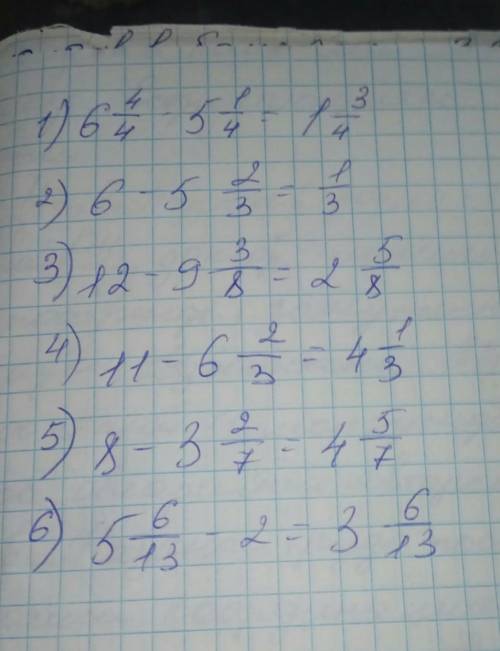 1) 6 4/4 - 5 1/4 = 1 3/4
2) 6 - 5 2/3 = 1/3
3) 12 - 9 3/8 = 2 5/8
4) 11 - 6 2/3 = 4 1/3
5) 8 - 3 2/7 = 4 5/7
6) 5 6/13 - 2 = 3 6/13